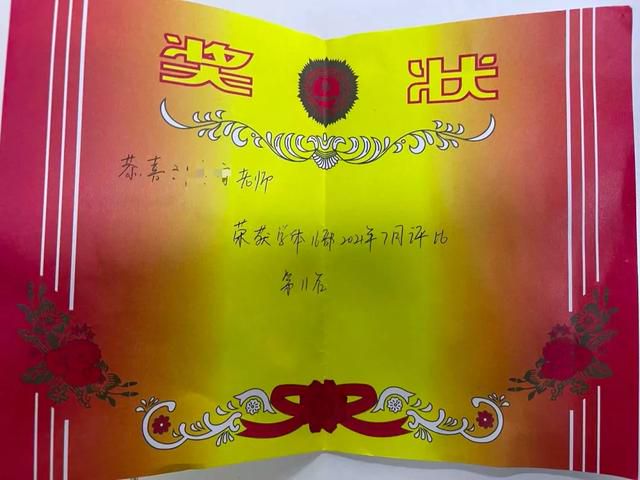 奖 状
恭喜 老师
荣获学体16部2021年7月评比
第11名